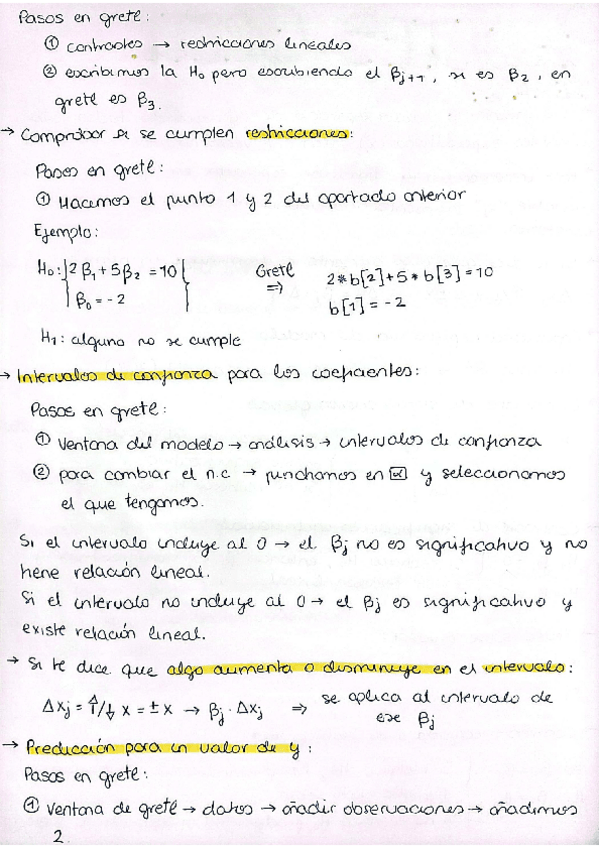 Pasos en gretl:
① contrastes → restricciones lineales
② escribimos la H₀ pero escribiendo el βj+1, si es β₂, en
gretl es β₃.
→ Comprobar si se cumplen restricciones:
Pasos en gretl:
① Hacemos el punto 1 y 2 del apartado anterior
Ejemplo:
H₀: { 2β₁ + 5β₂ = 10 Gretl 2*b[2]+5*b[3]=10
β₀ = -2 } ⇒ b[1] = -2
H₁: alguno no se cumple
→ Intervalos de confianza para los coeficientes:
Pasos en gretl:
① Ventana del modelo → análisis → intervalos de confianza
② para cambiar el n.c. → pinchamos en α y seleccionamos
el que tengamos.
Si el intervalo incluye al 0 → el βj no es significativo y no
tiene relación lineal.
Si el intervalo no incluye al 0 → el βj es significativo y
existe relación lineal.
→ Si te dice que algo aumenta o disminuye en el intervalo:
Δxj = ↑/↓ x = ± x → βj · Δxj ⇒ se aplica al intervalo de
ese βj
→ Predicción para un valor de y:
Pasos en gretl:
① Ventana de gretl → datos → añadir observaciones → añadimos
2.